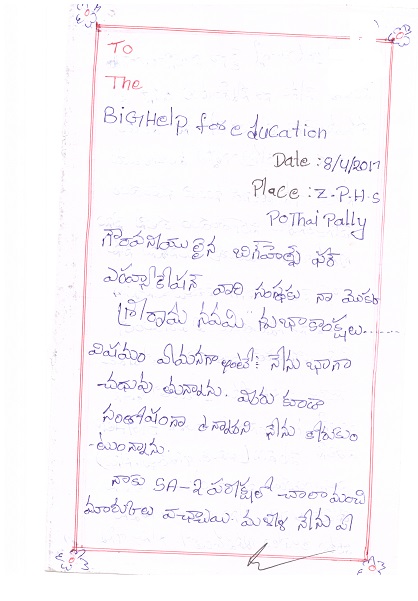 To
The
BiG Help for education
Date : 8/4/2017
Place : Z.P.H.S
PoThaiPally
గౌరవనీయులైన బిగ్‌హెల్ప్ ఫర్
ఎడ్యుకేషన్ వారి సంస్థకు నా మొదట
శ్రీరామ నవమి శుభాకాంక్షలు......
విషయం ఏమనగా అంటే: నేను భాగా
చదువు తున్నాను. మీరు కూడా
సంతోషంగా ఉన్నారని నేను కోరుకుం
-టున్నాను
నాకు SA-2 పరీక్షలలో చాలా మంచి
మార్కులు వచ్చాయి. మళ్లీ నేను ఏ